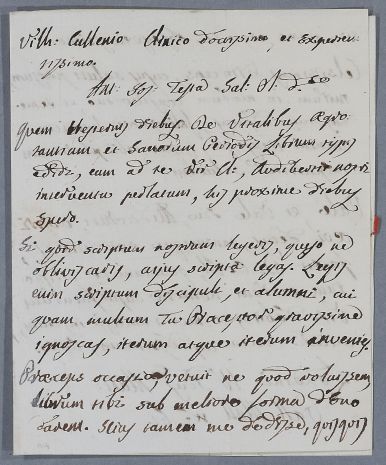 Vilh: Cullenio Clinico doctissimo, et Experien
tissimo.
Ant: Jos: Testa Sal: Pl: d.
Quem Hesternis diebus De Vitalibus Aegro
tantium et Sanorum Periodis Librum typis
edidi, eum ad te Vir Cl, Audiberti nostri
interventu perlatum, his proxime diebus
spero.
Si quod scriptum nostrum legeris, queso ne
obliviscaris, cujus scripta legas. Legis
enim scriptum discipuli, et alumni, cui
quam multum Tu Praeceptor gravissime
ignoscas, iterum atque iterum invenies.
Praeceps occasio, vetuit ne quod voluissem
librum tibi sub meliore forma dono
darem. Scias tamen me dedisse, quisquis